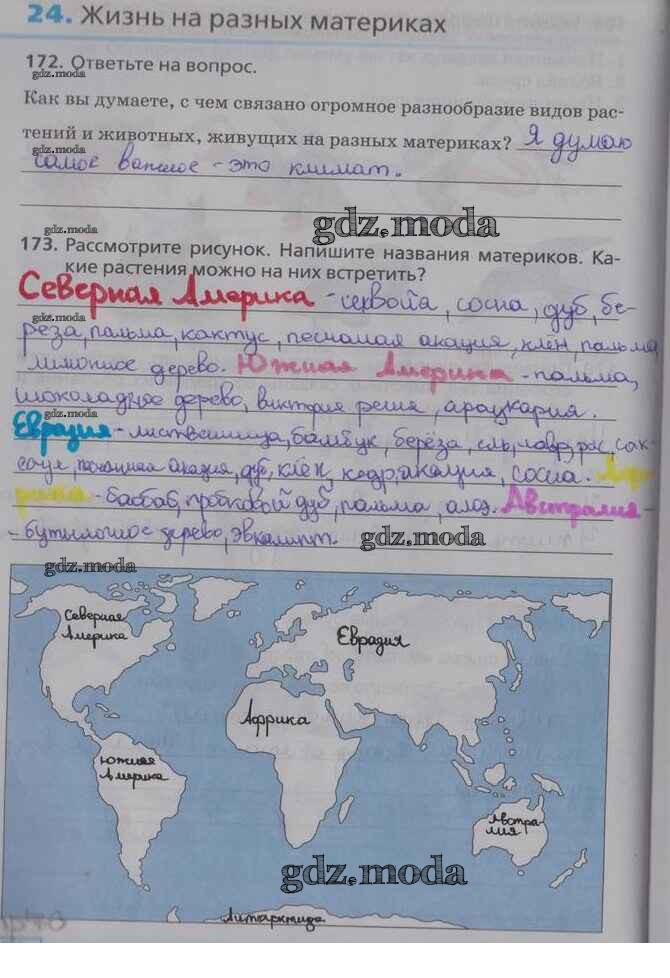 24. Жизнь на разных материках
172. Ответьте на вопрос.
gdz.moda
Как вы думаете, с чем связано огромное разнообразие видов рас-
тений и животных, живущих на разных материках? Я думаю
gdz.moda
самое важное - это климат.
gdz.moda
gdz.moda
173. Рассмотрите рисунок. Напишите названия материков. Ка-
кие растения можно на них встретить?
Северная Америка - секвойя, сосна, дуб, бе-
gdz.moda
рёза, пальма, кактус, песчаная акация, клён, пальма
лимонное дерево. Южная Америка - пальма,
gdz.moda
шоколадное дерево, виктория регия, араукария.
gdz.moda
Евразия - лиственница, бамбук, берёза, ель, лавр, рис, сак-
gdz.moda
саул, песчаная акация, дуб, клён, кедр, акация, сосна. Аф-
gdz.moda
рика - баобаб, пробковый дуб, пальма, алоэ. Австралия -
- бутылочное дерево, эвкалипт.
gdz.moda
gdz.moda
Северная
Америка
Евразия
Африка
Южная
Америка
Австра-
лия
gdz.moda
Антарктида